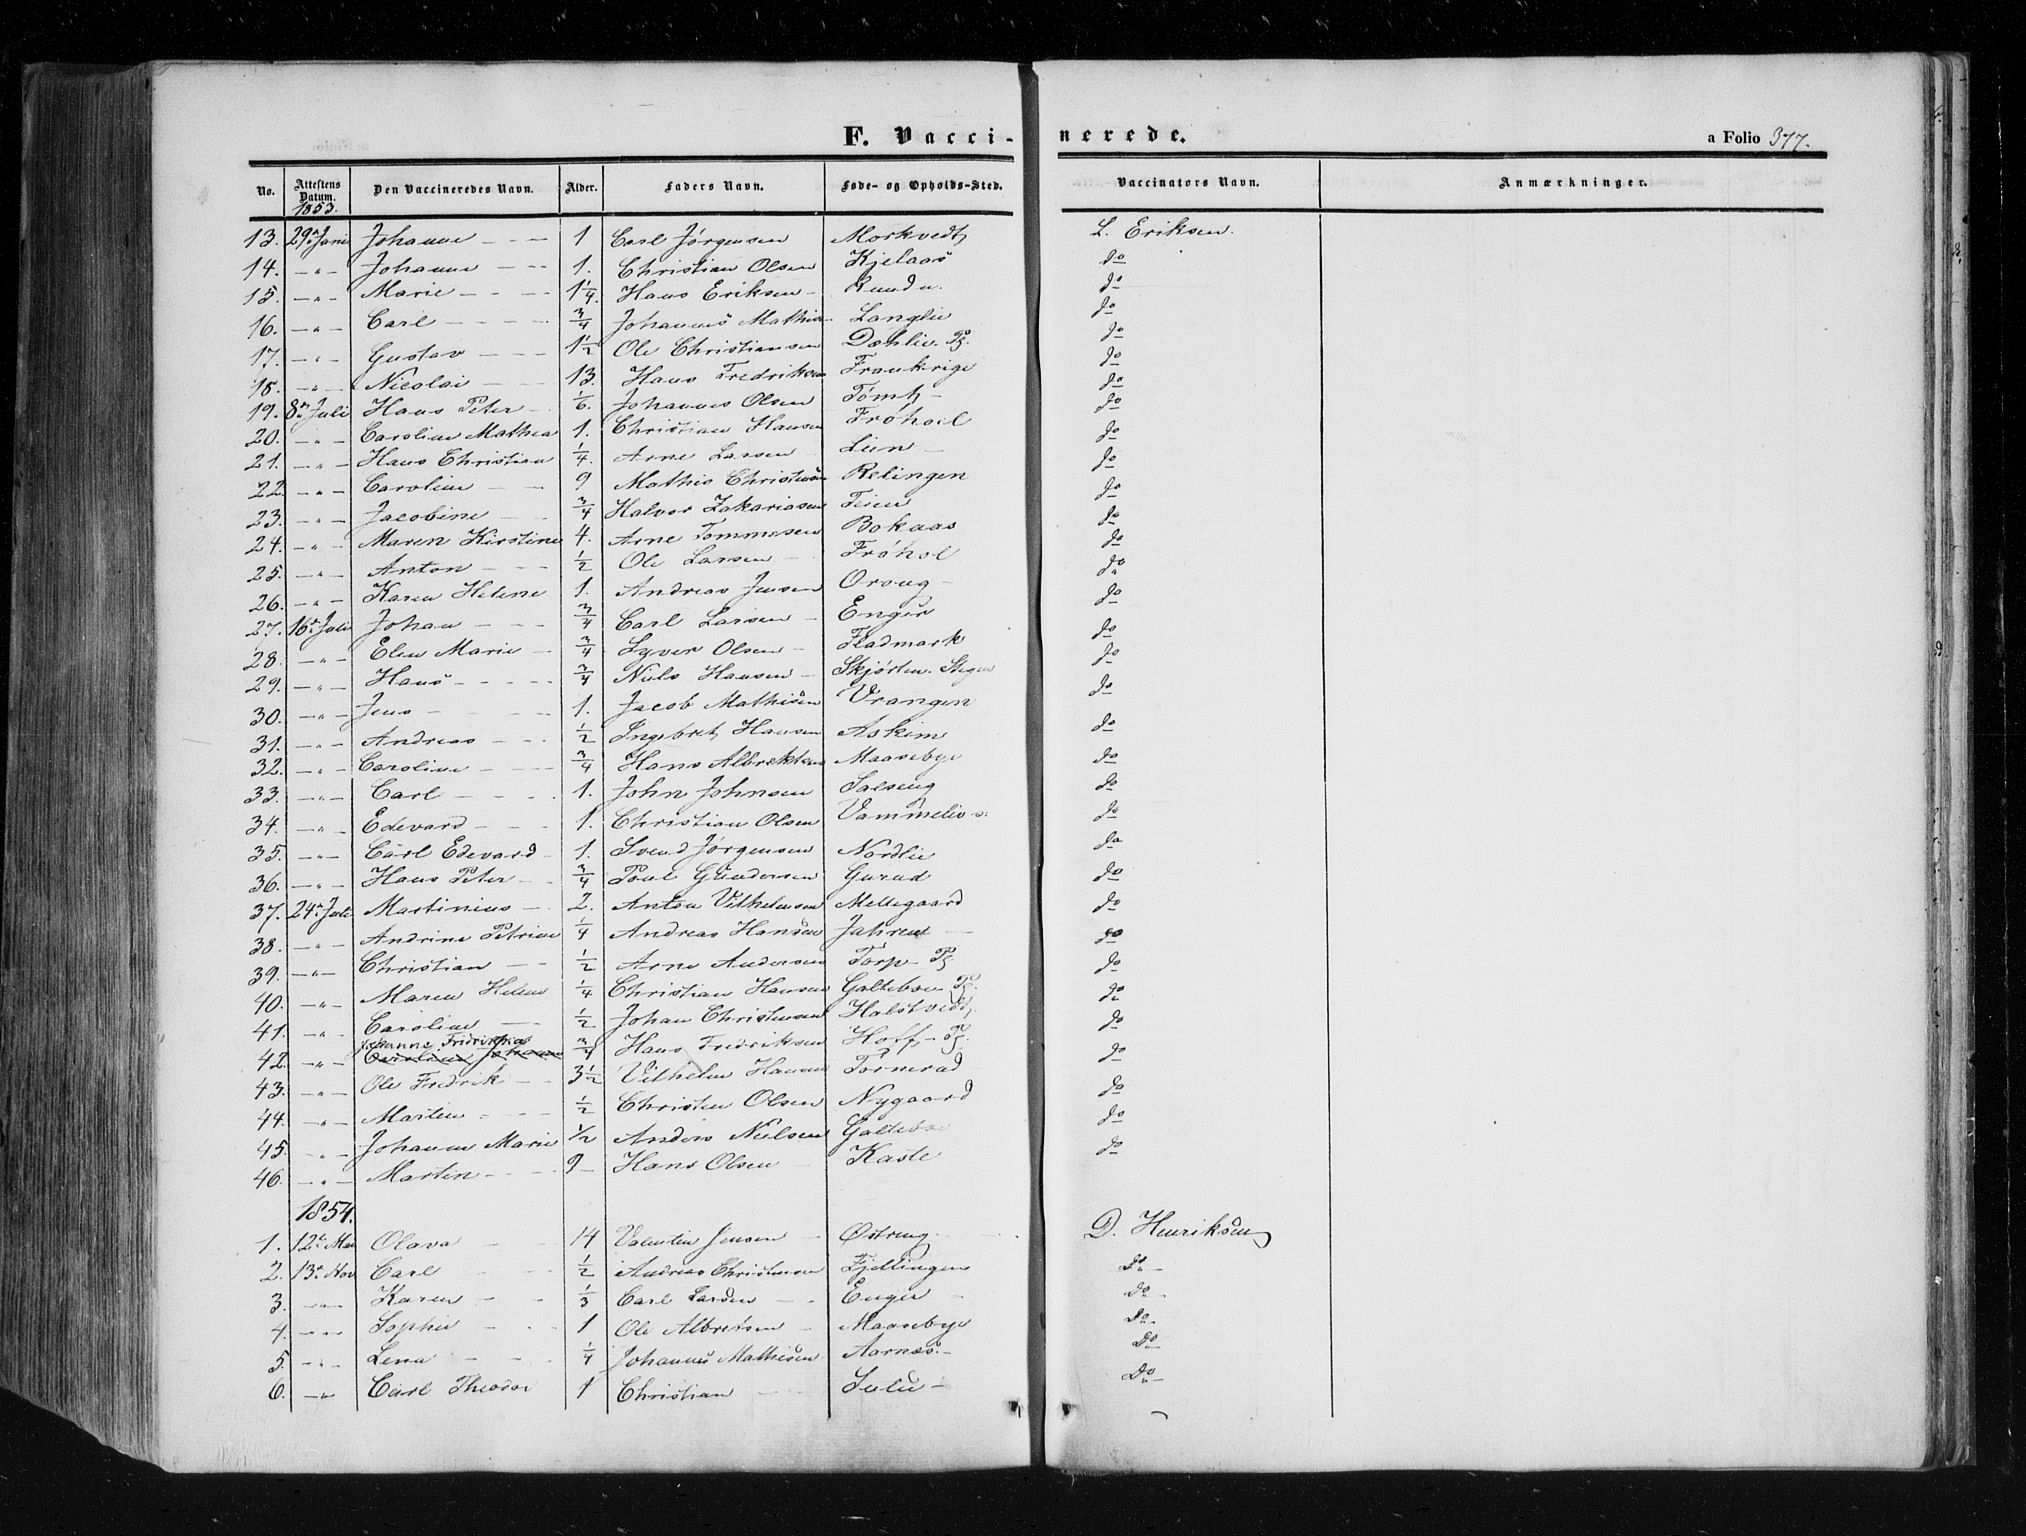 F. Vacci-nerede.
a Folio 377.
No. Attestens Datum. Den Vaccineredes Navn. Alder. Faders Navn. Føde- og Opholds-Sted. Vaccinators Navn. Anmærkninger.
1853.
13. 29 Juni Johanne - - - 1 Carl Jørgensen Morkvedt L. Eriksen.
14. - " - Johanne - - - 1. Christian Olsen Kjelaas do
15. - " - Marie - - - 1 1/4. Hans Eriksen - Ruud do
16. - " - Carl - - - 3/4 Johannes Mathis Langlie do
17. - " - Gustav - - - 1 1/2 Ole Christiansen Dæhlie Pg. do
18. - " - Nicolai - - - 13. Hans Fredriksen Frankrige do
19. 8de Juli Hans Peter - 1/6. Johannes Olsen Tomt - do
20. - " - Caroline Mathea 1. Christian Hansen Frøhoel do
21. - " - Hans Christian 1/4. Arne Larsen Lien - do
22. - " - Caroline - - 9 Mathis Christensen Relingen do
23. - " - Jacobine - - 3/4 Halvor Zakariasen Teien do
24. - " - Maren Kirstine 4. Arne Tommesen Bokaas do
25. - " - Anton - - - 1/2 Ole Larsen - Frøhol do
26. - " - Karen Helene 1. Andreas Jensen Oroug - do
27. 16de Juli Johan - - - 3/4 Carl Larsen - Enger do
28. - " - Elen Marie - 3/4 Syver Olsen - Fladmark do
29. - " - Hans - - - - 3/4 Niels Hansen - Skjørten. do
30. - " - Jens - - - 1. Jacob Mathisen Vrangen do
31. - " - Andreas - - 1/2 Ingebret Hansen Askim do
32. - " - Caroline - - 3/4 Hans Albrektsen Maasebye do
33. - " - Carl - - - 1. John Johnsen do
34. - " - Edevard - - - 1. Christian Olsen do
35. - " - Carl Edevard - 1. Svend Jørgensen Nordlie do
36. - " - Hans Peter - - 3/4 Poul Gundersen Gurud do
37. 24de Juli Martinius - - 2. Anton Vilhelmsen Mellegaard do
38. - " - Andrine Petrine 1/4 Andreas Hansen Jahren - do
39. - " - Christian - - 1/2 Arne Andersen Torp - Pg do
40. - " - Maren Helene 1/4 Christian Hansen Galteboe Pg. do
41. - " - Caroline - - 1/2 Johan Christensen Halstvedt do
Johanne Fridrikka
42. - " - Caroline Johanne 3/4 Hans Fredriksen Hoff, - Pg. do
43. - " - Ole Fredrik - - 3 1/2 Vilhelm Hansen Tornerud do
44. - " - Martin - - - 1/2 Christen Olsen Nygaard do
45. - " - Johanne Marie 1/2 Anders Nielsen Galteboe do
46. - " - Martin - - - 9 - Hans Olsen - Kaste do
1854.
1. 12te Mai Olava - 14 Valentin Jensen - Østeng. D. Henriksen
2. 13de Nov Carl - - 1/2 Andreas Christensen Fjellingen Do -
3. - " - Karen - - 1/3 Carl Larsen - - Enger - Do -
4. - " - Sophie - - 1 Ole Albretsen - Maasebye Do -
5. - " - Lena - - - 1/4 Johannes Mathisen Aarnæs. - Do
6. - " - Carl Theodor 1 Christian - - - Do -